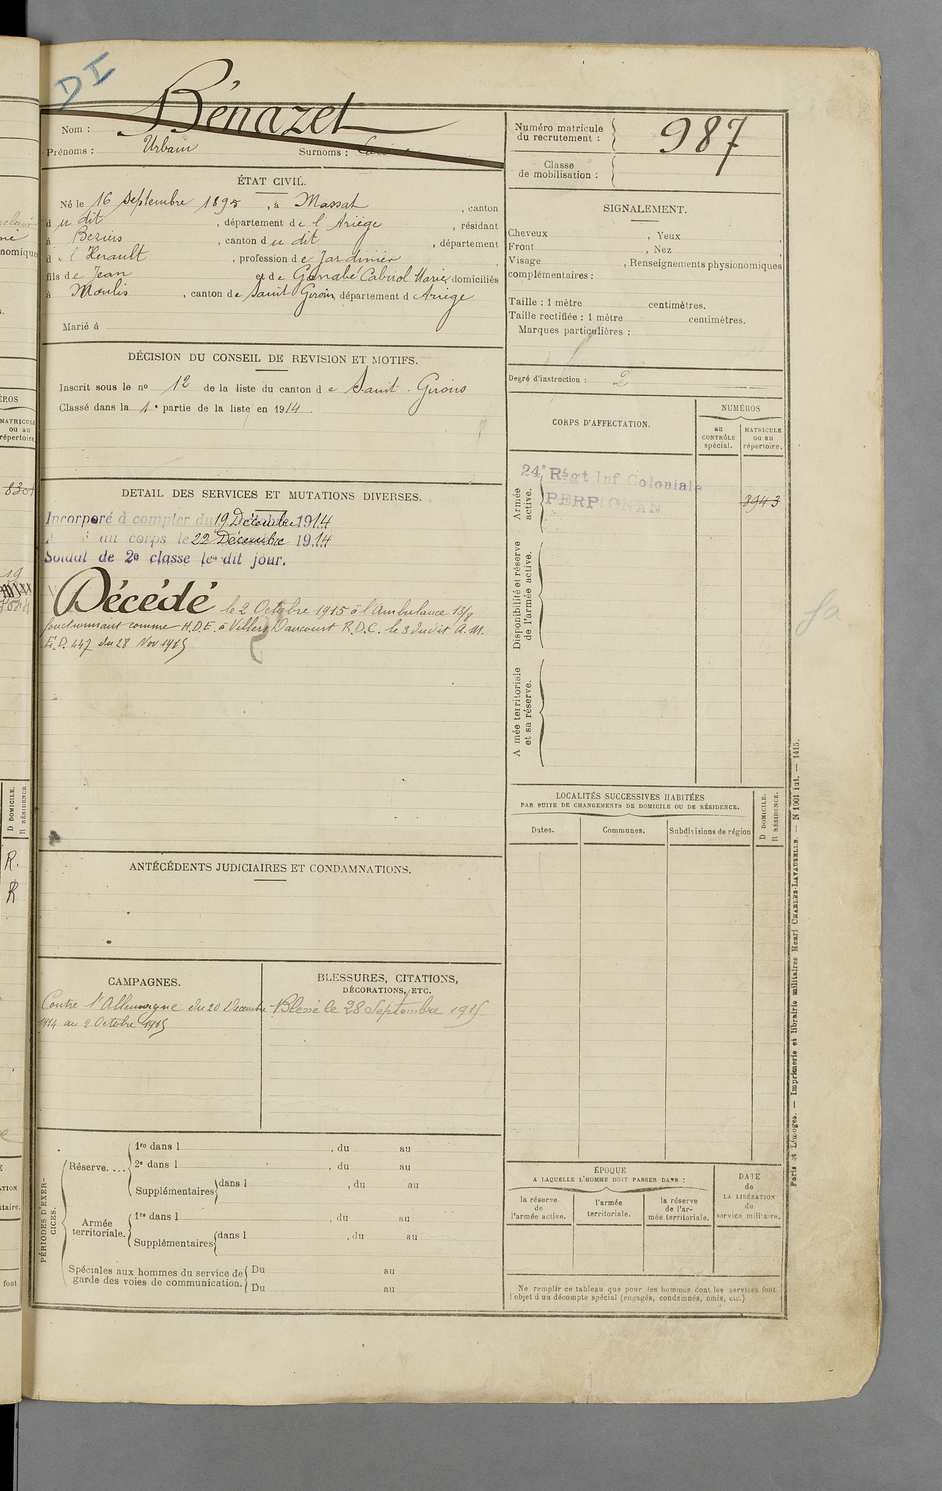 DI
Nom : Bénazet
Prénoms : Urbain Surnoms :
Numéro matricule du recrutement : 987
Classe de mobilisation :
ÉTAT CIVIL.
Né le 16 Septembre 1895, à Massat, canton
du dit, département de l'Ariège, résidant
à Beziers, canton du dit, département
de l'Herault, profession de Jardinier,
fils de Jean et de Cabirol Marie domiciliés
à Moulis, canton de Saint Girons, département d Ariège
Marié à
DÉCISION DU CONSEIL DE REVISION ET MOTIFS.
Inscrit sous le no 12 de la liste du canton de Saint-Girons
Classé dans la 1e partie de la liste en 1914
DETAIL DES SERVICES ET MUTATIONS DIVERSES.
Incorporé à compter du 19 Décembre 1914
au corps le 22 Décembre 1914
Soldat de 2e classe le dit jour.
Décédé le 2 Octobre 1915 à l'Ambulance 13/8
fonctionnant comme H.D.E. à Villers Daucourt R.D.C. le 3 dudit A.M.
E.D. 447 du 28 Nov 1915
ANTÉCÉDENTS JUDICIAIRES ET CONDAMNATIONS.
CAMPAGNES.
Contre l'Allemagne du 20 Décembre
1914 au 2 Octobre 1915
BLESSURES, CITATIONS,
DÉCORATIONS, ETC.
Blessé le 28 Septembre 1915
PÉRIODES D'EXERCICES.
Réserve....
1re dans l , du au
2e dans l , du au
Supplémentaires dans l , du au
Armée territoriale.
1re dans l , du au
Supplémentaires dans l , du au
Spéciales aux hommes du service de garde des voies de communication.
Du au
Du au
SIGNALEMENT.
Cheveux , Yeux ,
Front , Nez
Visage , Renseignements physionomiques
complémentaires :
Taille : 1 mètre centimètres.
Taille rectifiée : 1 mètre centimètres.
Marques particulières :
Degré d'instruction : 2
CORPS D'AFFECTATION.
NUMÉROS
au CONTRÔLE spécial.
MATRICULE ou au répertoire.
Armée active.
24e Régt Inf Coloniale
PERPIGNAN
8943
Disponibilité et réserve de l'armée active.
Armée territoriale et sa réserve.
LOCALITÉS SUCCESSIVES HABITÉES
PAR SUITE DE CHANGEMENTS DE DOMICILE OU DE RÉSIDENCE.
D DOMICILE.
R RÉSIDENCE.
Dates.
Communes.
Subdivisions de région
ÉPOQUE
A LAQUELLE L'HOMME DOIT PASSER DANS :
la réserve de l'armée active.
l'armée territoriale.
la réserve de l'armée territoriale.
DATE
de
LA LIBÉRATION
du
service militaire.
Ne remplir ce tableau que pour les hommes dont les services font
l'objet d'un décompte spécial (engagés, condamnés, omis, etc.)
Paris et Limoges. — Imprimerie et librairie militaires Henri CHARLES-LAVAUZELLE. — N 1901 int. — 1415.